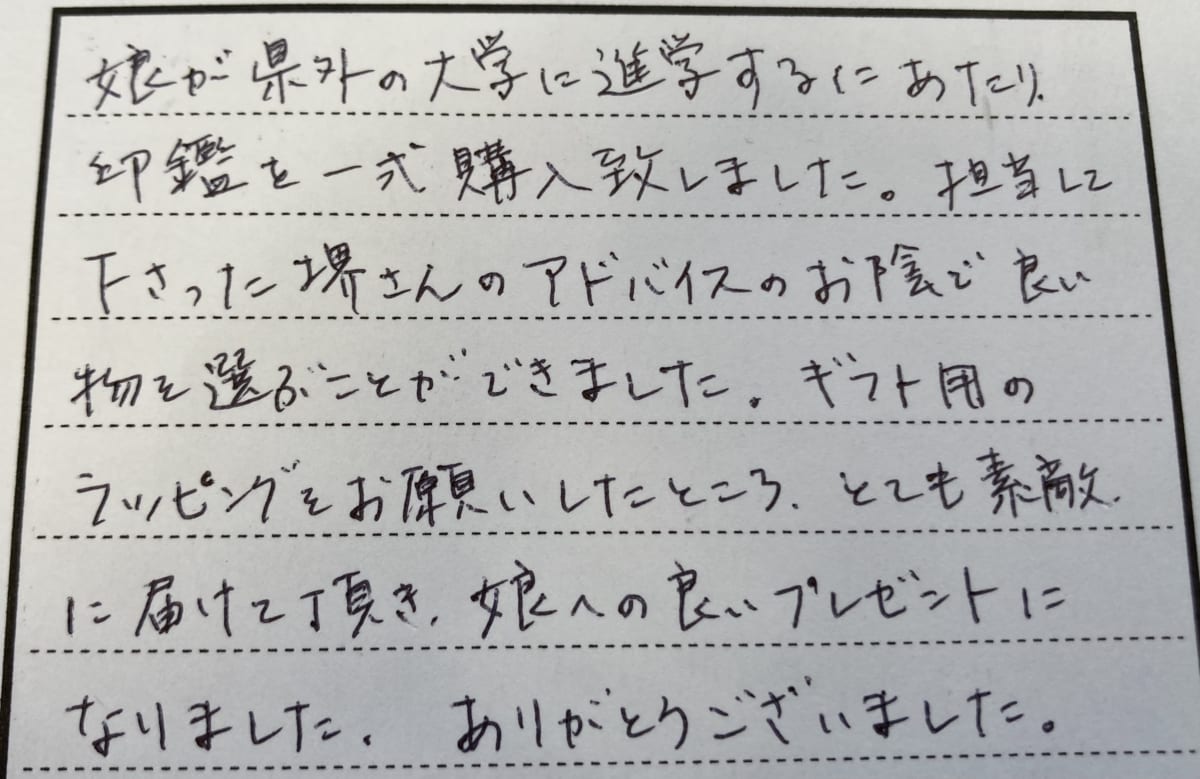 娘が県外の大学に進学するにあたり、
印鑑を一式購入致しました。担当して
下さった堺さんのアドバイスのお陰で良い
物を選ぶことができました。ギフト用の
ラッピングをお願いしたところ、とても素敵
に届けて頂き、娘への良いプレゼントに
なりました。ありがとうございました。